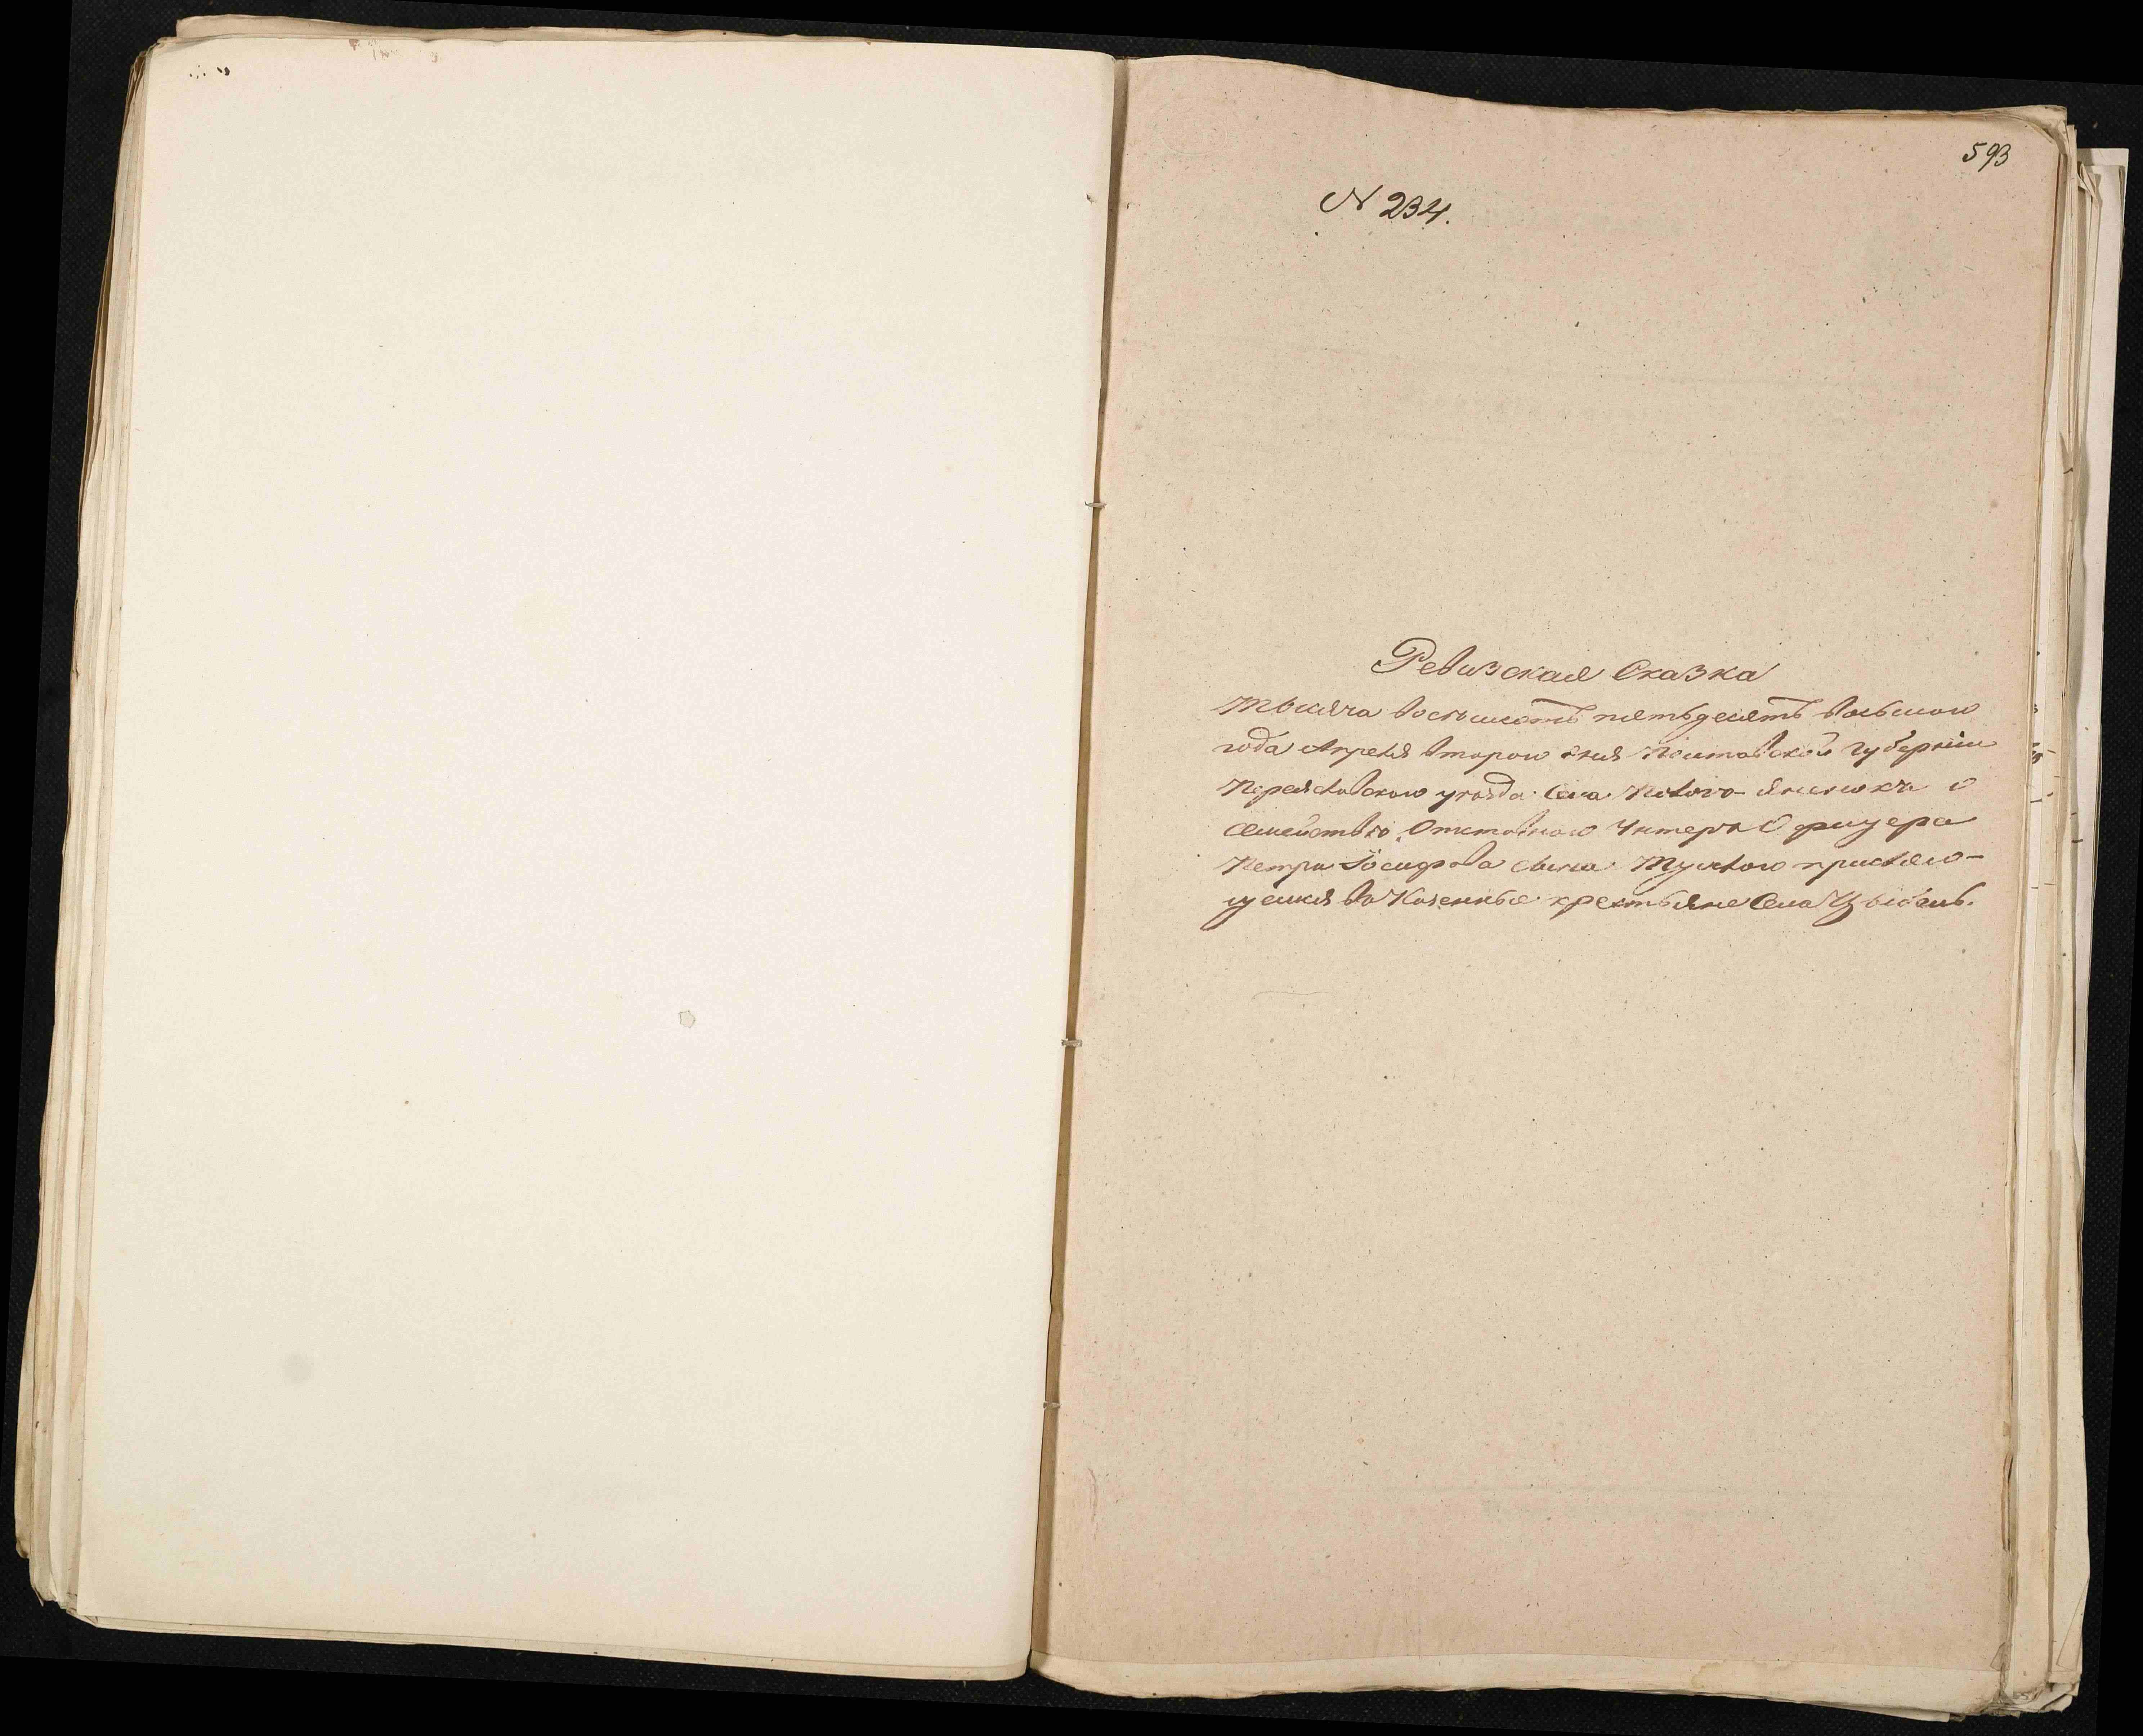 593
N 234.
Ревизская Сказка
Тысяча восемсотъ пятьдесятъ восьмого
года Апреля второго дня Полтавской Губерніи
Переяславского уезда Села
семействе Отставного Унтеръ Офицера
Петра Іосифова сына присляю-
щемся въ Казенные крестьяне Села Цыбель.